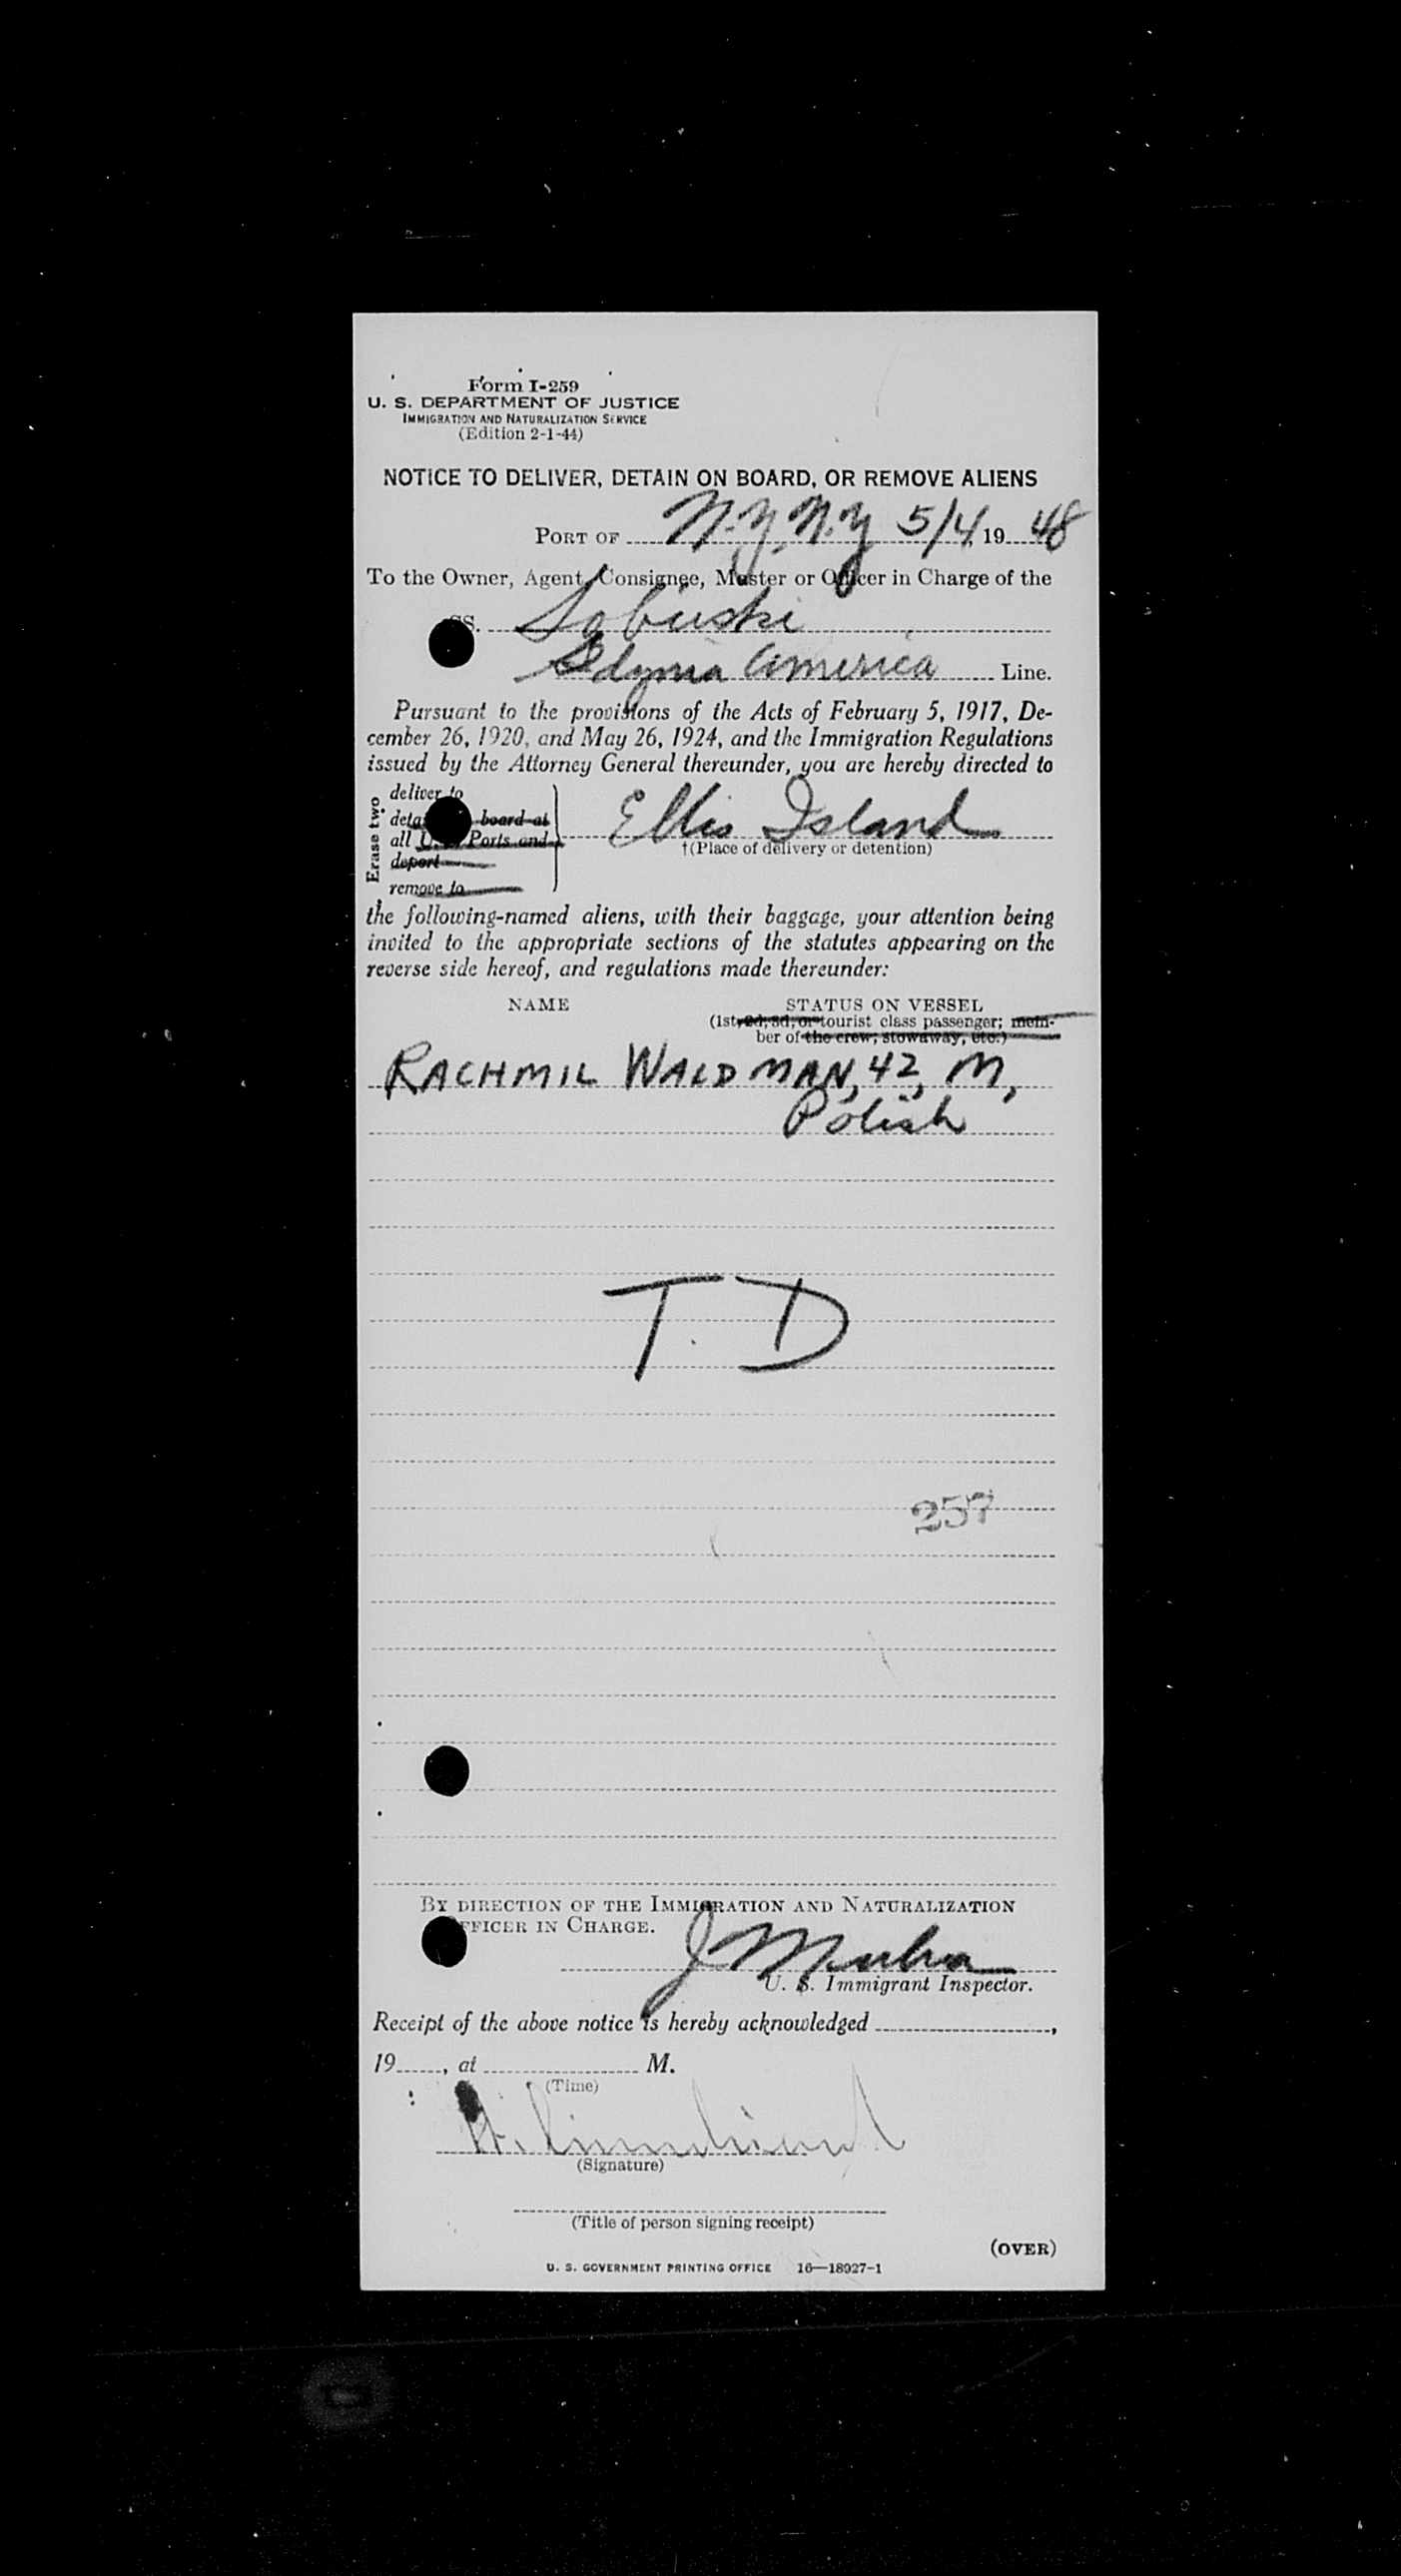 Form I-259
U. S. DEPARTMENT OF JUSTICE
IMMIGRATION AND NATURALIZATION SERVICE
(Edition 2-1-44)
NOTICE TO DELIVER, DETAIN ON BOARD, OR REMOVE ALIENS
PORT OF N.Y. N.Y 5/4 19 48
To the Owner, Agent, Consignee, Master or Officer in Charge of the
SS. Sobieski
Gdynia America Line.
Pursuant to the provisions of the Acts of February 5, 1917, De-
cember 26, 1920, and May 26, 1924, and the Immigration Regulations
issued by the Attorney General thereunder, you are hereby directed to
Erase two
deliver to
board at
all U. Ports and
deport
remove to
Ellis Island
†(Place of delivery or detention)
the following-named aliens, with their baggage, your attention being
invited to the appropriate sections of the statutes appearing on the
reverse side hereof, and regulations made thereunder:
NAME STATUS ON VESSEL
(1st, 2d, 3d, or tourist class passenger; mem-
ber of the crew; stowaway, etc.)
RACHMIL WALDMAN, 42, M,
Polish
T. D
257
BY DIRECTION OF THE IMMIGRATION AND NATURALIZATION
OFFICER IN CHARGE.
U. S. Immigrant Inspector.
Receipt of the above notice is hereby acknowledged ,
19 , at M.
(Time)
(Signature)
(Title of person signing receipt)
(OVER)
U. S. GOVERNMENT PRINTING OFFICE 16—18027-1